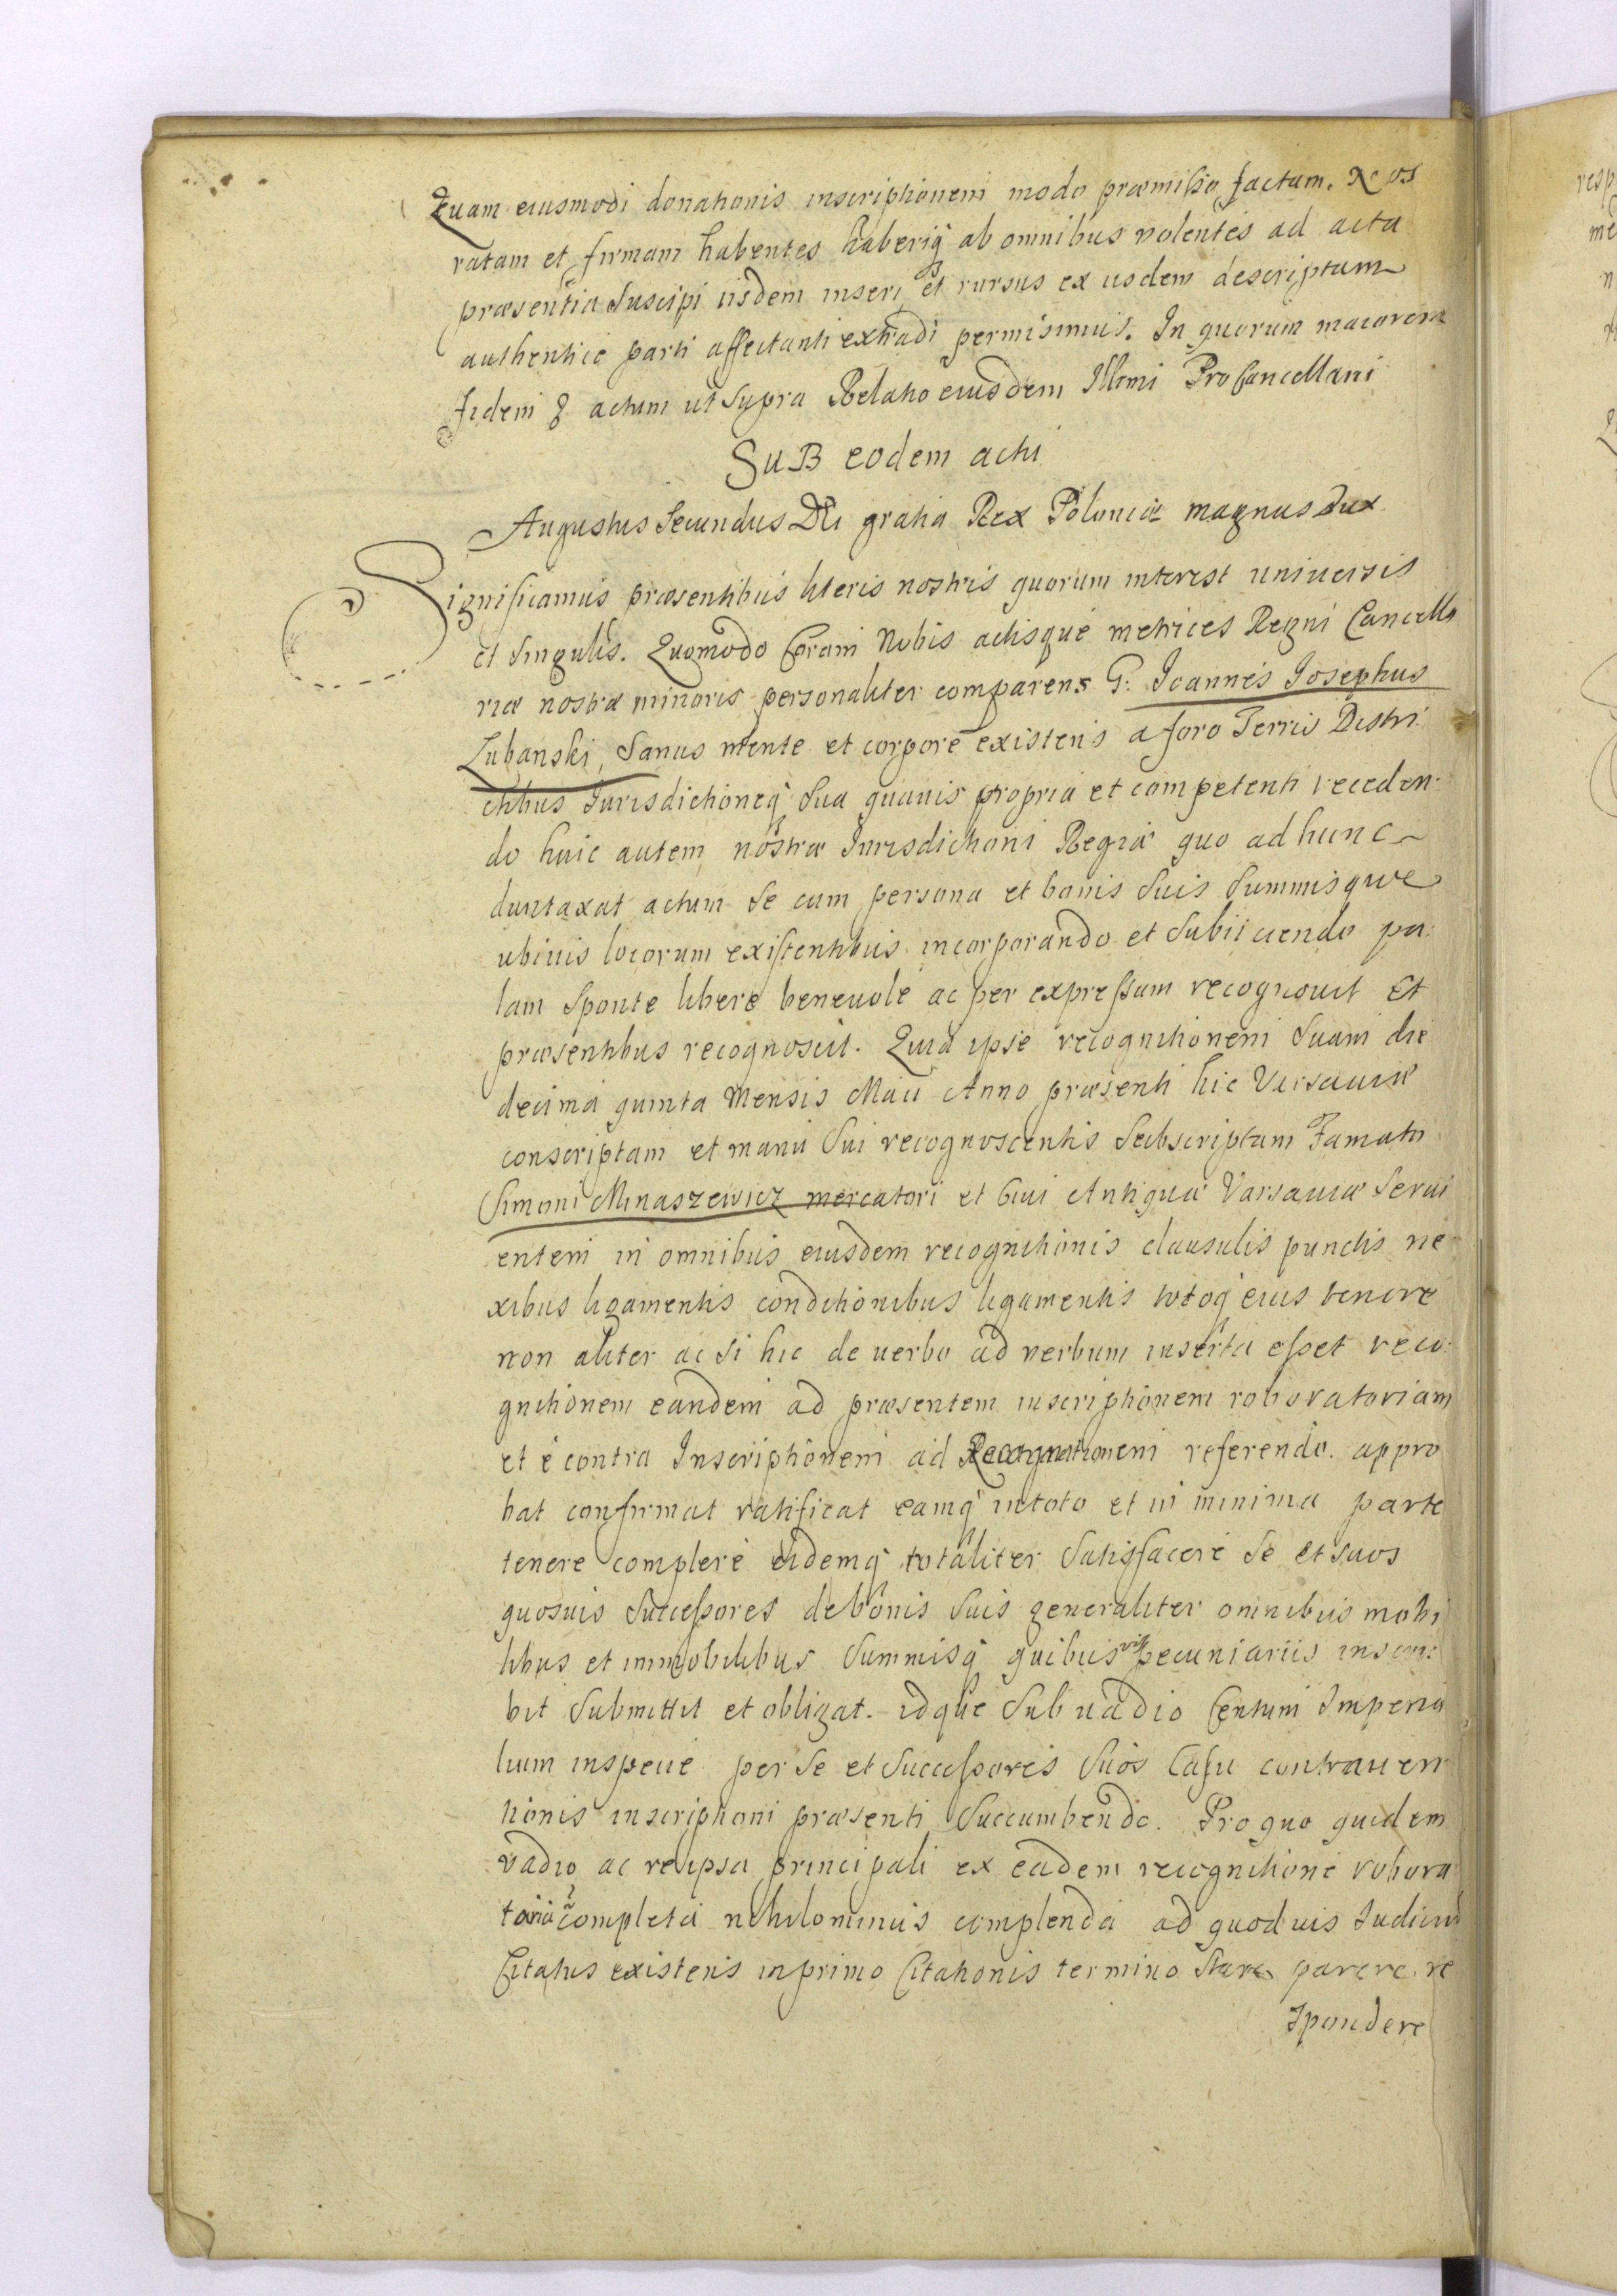 Quam eiusmodi donationis inscriptionem modo præmisso factam. Nos
ratam et firmam habentes haberiq́ ab omnibus volentes ad acta
præsentia suscipi iisdem inseri et rursus ex iisdem descriptam
authentice parti affectanti extradi permisimus. In quorum maiorem
fidem & actum ut supra Relatio eiusdem Illmi ProCancellarii
SuB eodem acti
Augustus Secundus Dei gratia Rex Poloniæ magnus Dux
Significamus præsentibus literis nostris quorum interest uniuersis
et singulis. Quomodo Coram Nobis actisque metrices Regni Cancella
riæ nostræ minoris personaliter comparens G: Joannes Josephus
Lubanski, Sanus mente et corpore existens a foro Terris Distri
ctibus Jurisdictioneq́ sua quauis propria et competenti receden:
do huic autem nostræ Jurisdictioni Regiæ quo ad hunc
duntaxat actum se cum persona et bonis suis summisque
ubiuis locorum existentibus incorporando et subiiciendo pa:
lam sponte libere beneuole ac per expressum recognouit Et
præsentibus recognoscit. Quia ipse recognitionem suam die
decima quinta Mensis Maii Anno præsenti hic Varsauiæ
conscriptam et manu sui recognoscentis subscriptam Famato
Simoni Minaszewicz mercatori et Ciui Antiquæ Varsauiæ serui
entem in omnibus eiusdem recognitionis clausulis punctis ne
xibus ligamentis conditionibus ligamentis totoq́ eius tenore
non aliter ac si hic de uerbo ad uerbum inserta esset reco:
gnitionem eandem ad præsentem inscriptionem roboratoriam
et e contra Inscriptionem ad Recognitionem referendo. appro
bat confirmat ratificat eamq́ in toto et in minima parte
tenere complere eidemq́ totaliter satisfacere se et suos
quosuis successores de bonis suis generaliter omnibus mobi
libus et immobilibus summisq́ quibusvis pecuniariis inscri:
bit submittit et obligat. idque sub uadio Centum Imperia
lium in specie per se et successores suos Casu contrauen
tionis inscriptioni præsenti succumbendo. Pro quo quidem
vadio ac re ipsa principali ex eadem recognitione robora
toria completa nihilominus complenda ad quoduis Iudicium
Citatus existens in primo Citationis termino stare parere re
spondere